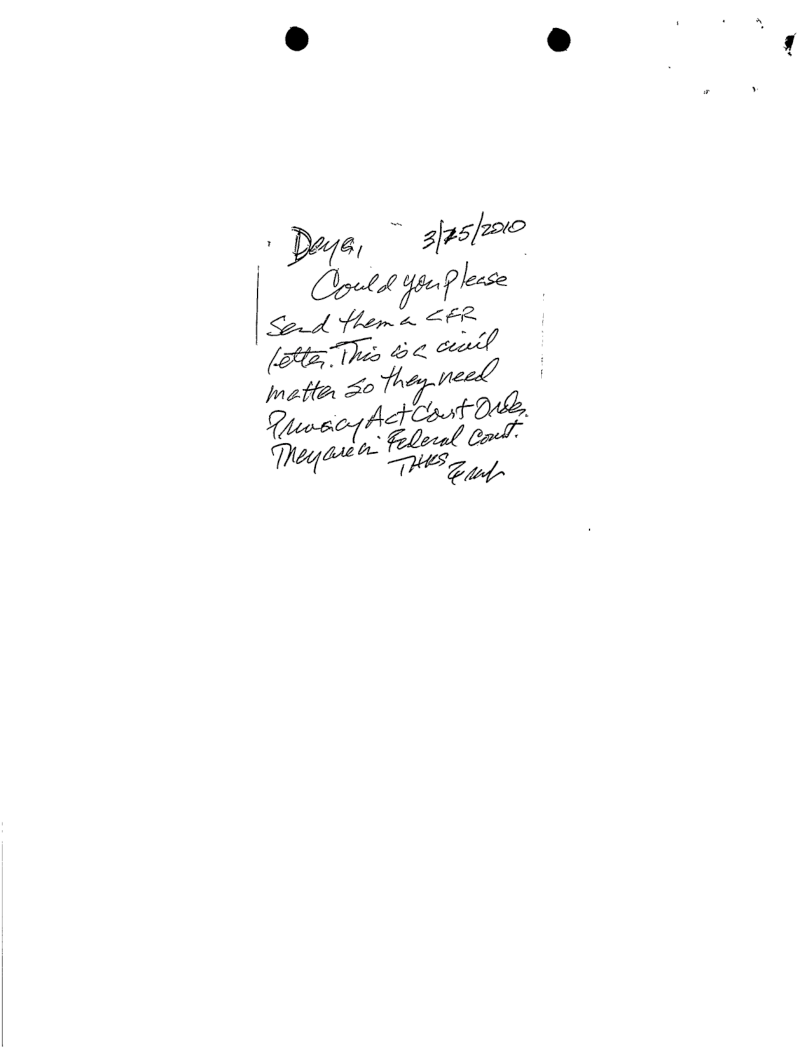 Deya, 3/25/2010
Could you please
Send them a CFR
letter. This is a civil
matter so they need
Privacy Act Court Order.
They are in Federal Court.
THKS